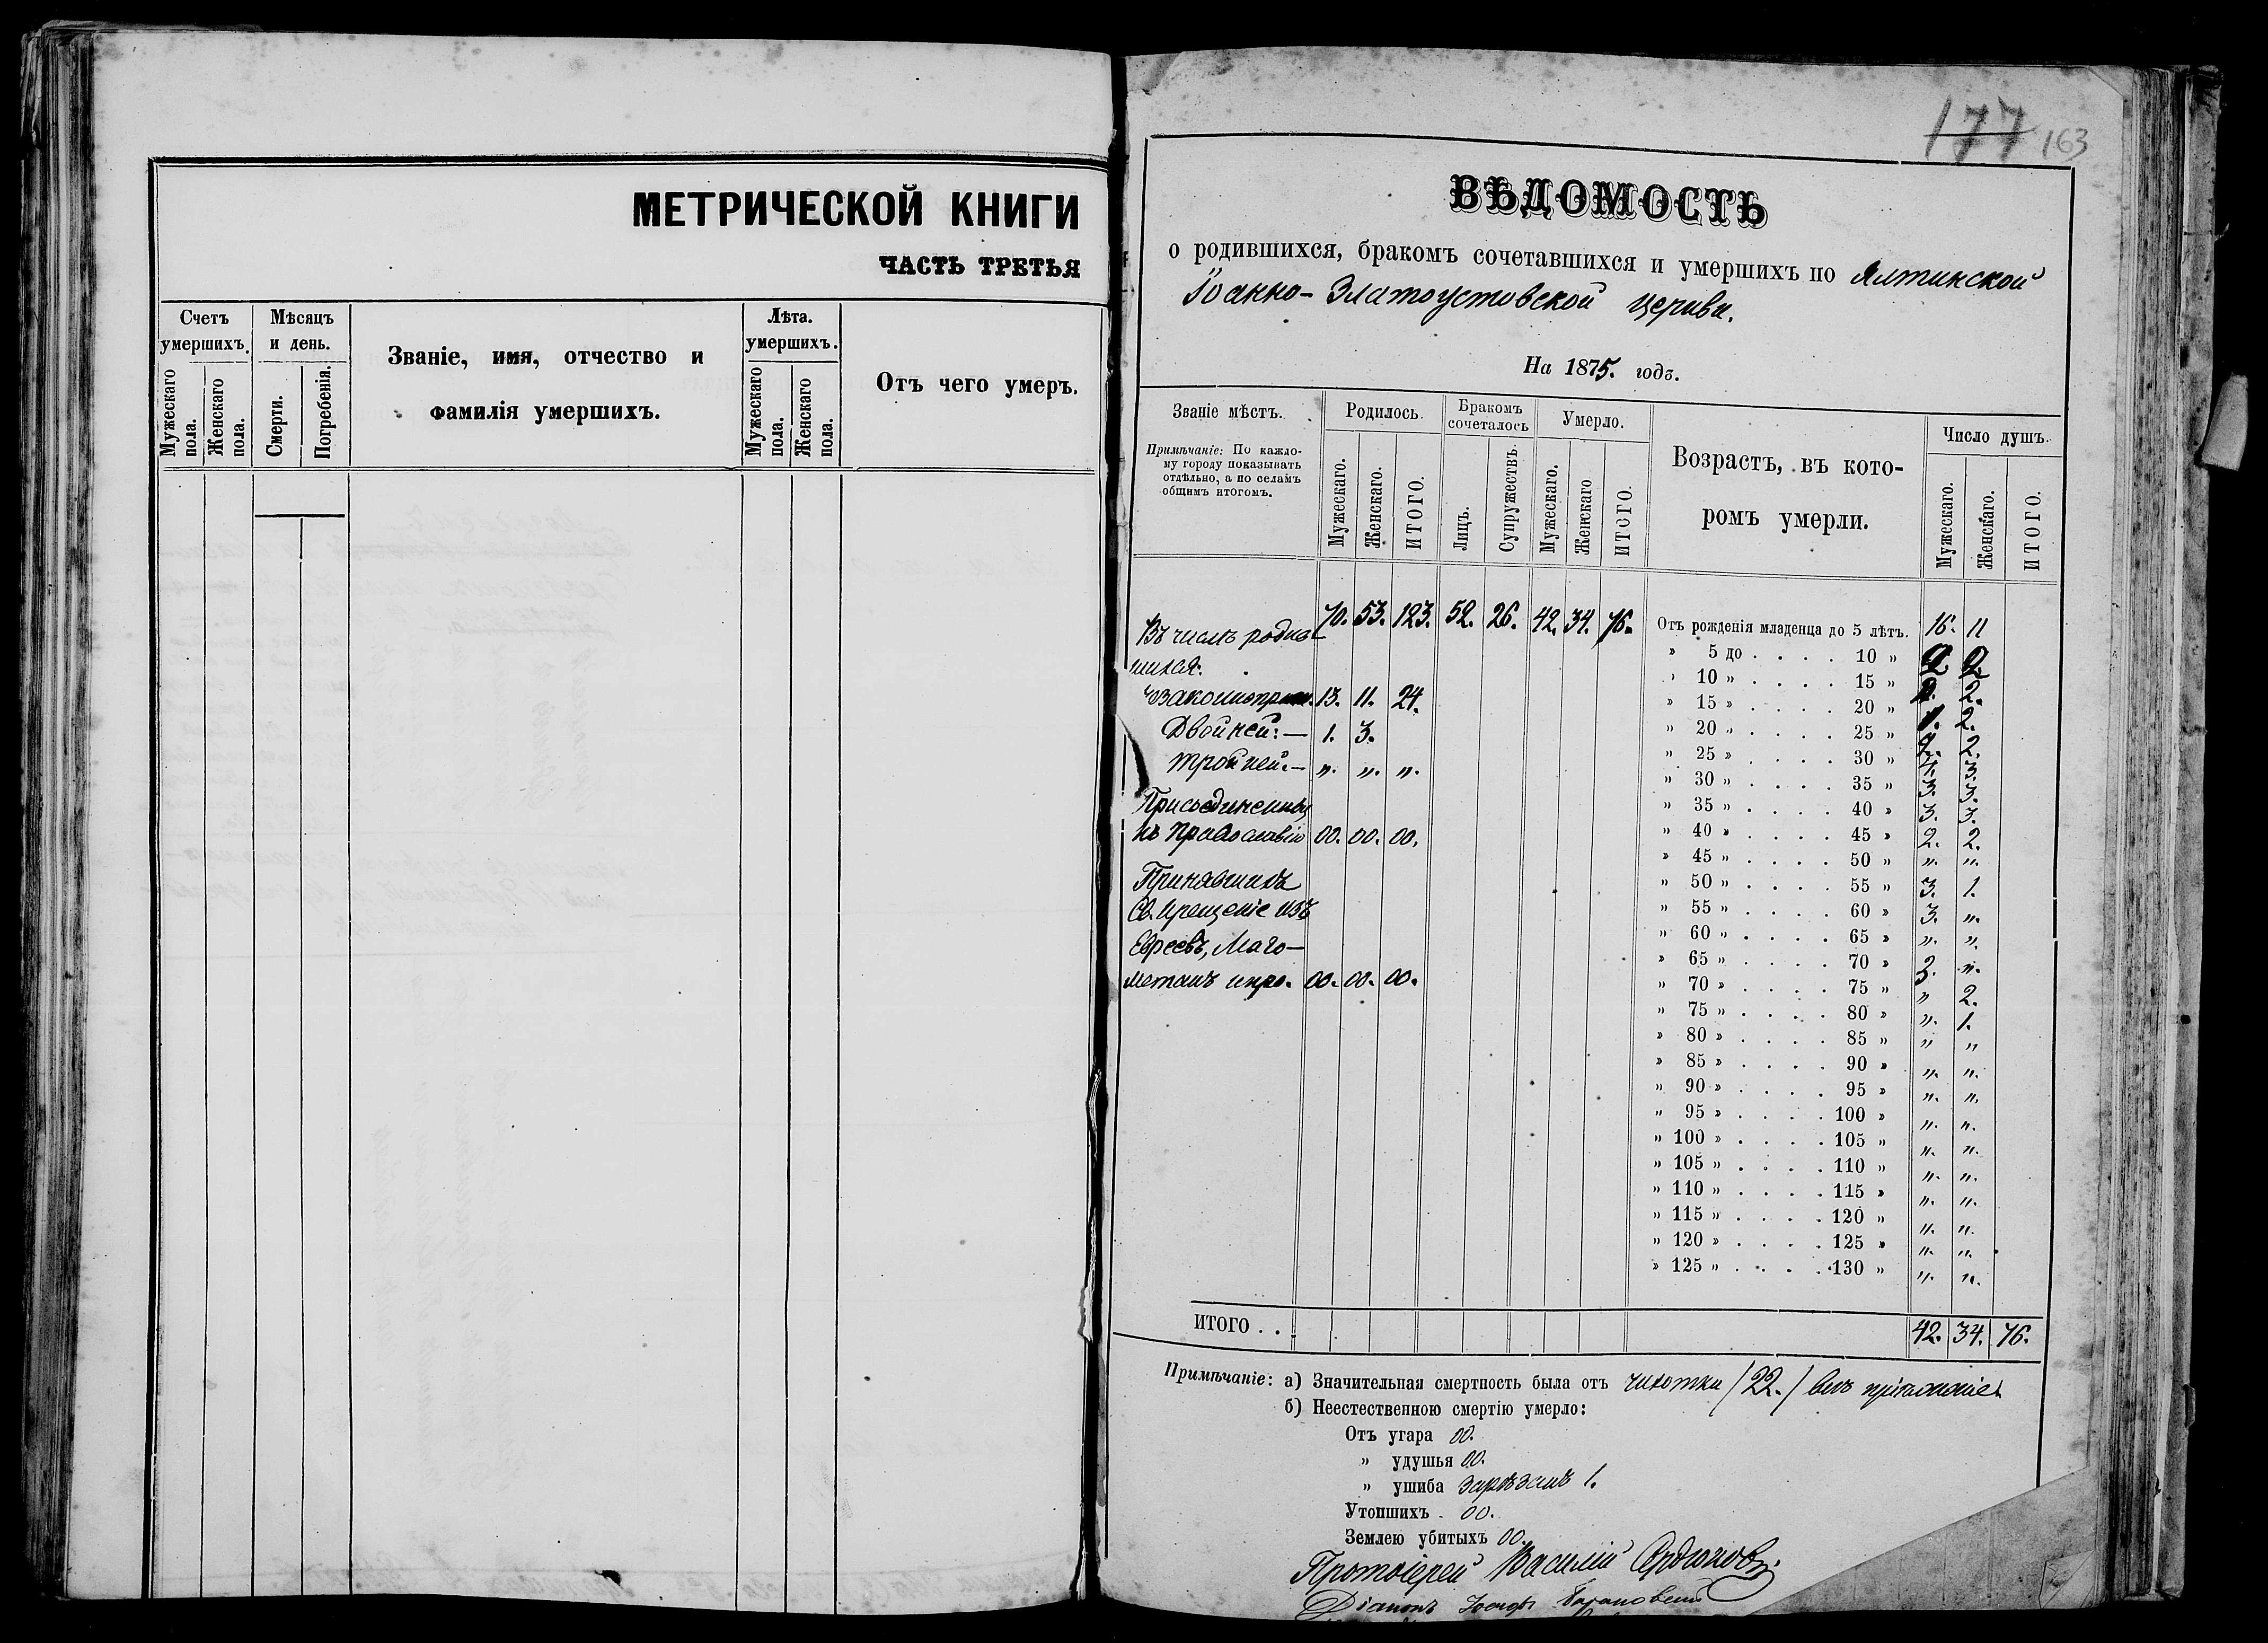 МЕТРИЧЕСКОЙ КНИГИ
ЧАСТЬ ТРЕТЬЯ
Счетъ умершихъ.
Мужескаго пола.
Женскаго пола.
Мѣсяцъ и день.
Смерти.
Погребенія.
Званіе, имя, отчество и
фамилія умершихъ.
Лѣта. умершихъ.
Мужескаго пола.
Женскаго пола.
Отъ чего умеръ.
177 163
ВѢДОМОСТЬ
о родившихся, бракомъ сочетавшихся и умершихъ по Ялтинской
Іоанно-Златоустовской церкви.
На 1875. годъ.
Званіе мѣстъ.
Примѣчаніе: По каждо-
му городу показывать
отдѣльно, а по селамъ
общимъ итогомъ.
Родилось.
Мужескаго.
Женскаго.
ИТОГО.
Бракомъ
сочеталось
Лицъ.
Супружествъ.
Умерло.
Мужескаго.
Женскаго
ИТОГО.
Возрастъ, въ кото-
ромъ умерли.
Число душъ.
Мужескаго.
Женскаго.
ИТОГО.
70. 53. 123. 52. 26. 42. 34. 76.
Въ числѣ родив-
шихся:
13. 11. 24.
Двойней: — 1. 3.
Тройней. — „. „. „.
Присоединенныхъ
къ Православію 00. 00. 00.
Принявшихъ
Св. Крещеніе изъ
Евреевъ, Маго-
метанъ и пр. 00. 00. 00.
Отъ рожденія младенца до 5 лѣтъ. 16. 11
» 5 до . . . . 10 » 2. 2.
› 10 » . . . . 15 » 2.
» 15 » . . . . 20 » 1. 2.
» 20 » . . . . 25 » 2.
» 25 » . . . . 30 » 4. 3.
» 30 » . . . . 35 » 3. 3.
» 35 » . . . . 40 » 3. 3.
» 40 » . . . . 45 » 2. 2.
» 45 » . . . . 50 » „. „.
» 50 » . . . . 55 » 3. 1.
» 55 » . . . . 60 » 3. „.
» 60 » . . . . 65 » „. „.
» 65 » . . . . 70 » „.
» 70 » . . . . 75 » „ 2.
» 75 » . . . . 80 » „. 1.
» 80 » . . . . 85 » „ „
» 85 » . . . . 90 » „. „.
» 90 » . . . . 95 » „. „.
» 95 » . . . . 100 » „. „.
» 100 » . . . . 105 » „. „.
» 105 » . . . . 110 » „. „.
» 110 » . . . . 115 » „. „.
» 115 » . . . . 120 » „. „.
» 120 » . . . . 125 » „. „.
» 125 » . . . . 130 » „. „.
ИТОГО . . 42. 34. 76.
Примѣчаніе: а) Значительная смертность была отъ чихотки /22./
б) Неестественною смертію умерло:
Отъ угара 00.
» удушья 00.
» ушиба зарѣзанъ 1.
Утопшихъ . 00.
Землею убитыхъ 00.
Протоіерей Василій
Діаконъ